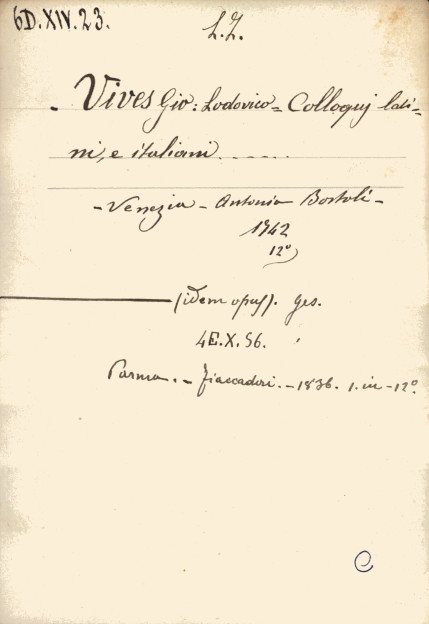 6D.XIV.23.
L.Z.
- Vives Gio: Lodovico = Colloquj lati=
ni, e italiani . . . . . .
- Venezia - Antonio Bortoli -
1742
12º
(idem opus). ges.
4E.X.56.
Parma. - Fiaccadori. - 1836. 1. in - 12º.
C